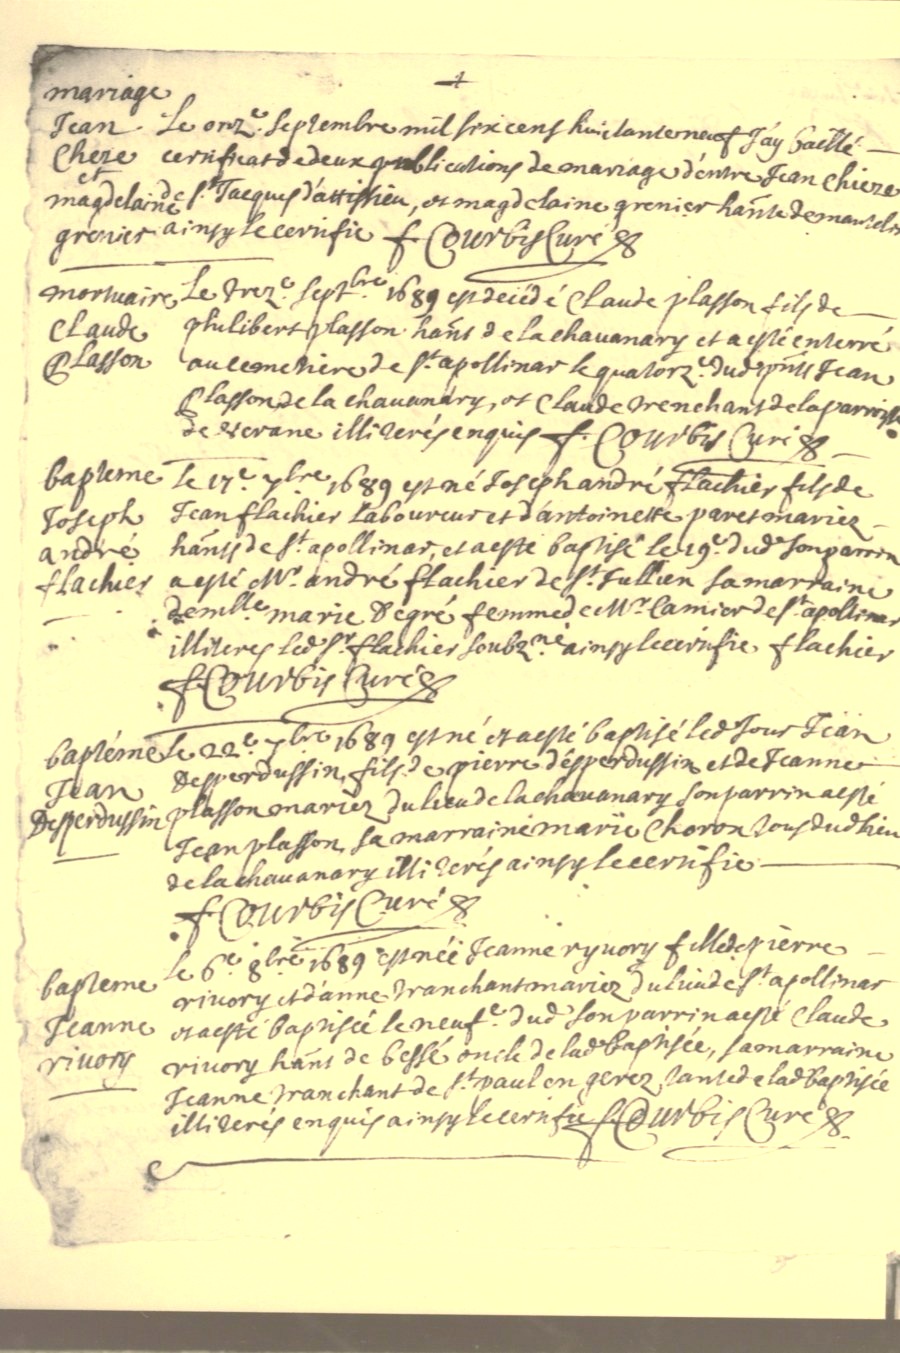 mariage
Jean Le onze. Septembre mil six cens huictante neuf J'ay baillé
Cheze certificat de deux publications de mariage d'entre Jean Chieze
et
magdelaine de St Jacques d'attissieu, et magdelaine grenier hante de
grenier ainsy le certifie f. Courbis Curé
mortuaire Le treze. septbre 1689 est decédé Claude plasson fils de
Claude philibert plasson hant de la chauanary et a esté enterré
Plasson au cemetiere de St apollinar le quatorze. dud pnts Jean
Plasson de la chauanary, et Claude trenchant de la parroisse
de illiterés enquis f. Courbis Curé
bapteme le 17e 7bre 1689 est né Joseph andré flachier fils de
Joseph Jean flachier Laboureur et d'antoinette paret mariez
andré hants de St apollinar, et a esté baptisé le 19e dud son parrin
flachier a esté Mr andré flachier de St Jullien sa marraine
demlle marie Degré femme de Mr Lamier de St apollinar
illiteres led Sr flachier soubzné ainsy le certifie flachier
f. Courbis Curé
baptéme le 22e 7bre 1689 est né et a esté baptisé led Jour Jean
Jean Desperdussin, fils de pierre d'esperdussin et de Jeanne
Desperdussin plasson mariez du lieu de la chauanary son parrin a esté
Jean plasson, sa marraine marie Choron tous dud lieu
de la chauanary illiterés ainsy le certifie
f. Courbis Curé
le 6e 8bre 1689 est née Jeanne ryuory fille de pierre
bapteme riuory et d'anne tranchant mariez du lieu de St apollinar
Jeanne et a esté baptisée le neufe. dud son parrin a esté Claude
riuory riuory hant de bessé oncle de lad baptisée, sa marraine
Jeanne tranchant de St paul en gerez tante de lad baptisée
illiterés enquis ainsy le certifie f. Courbis Curé